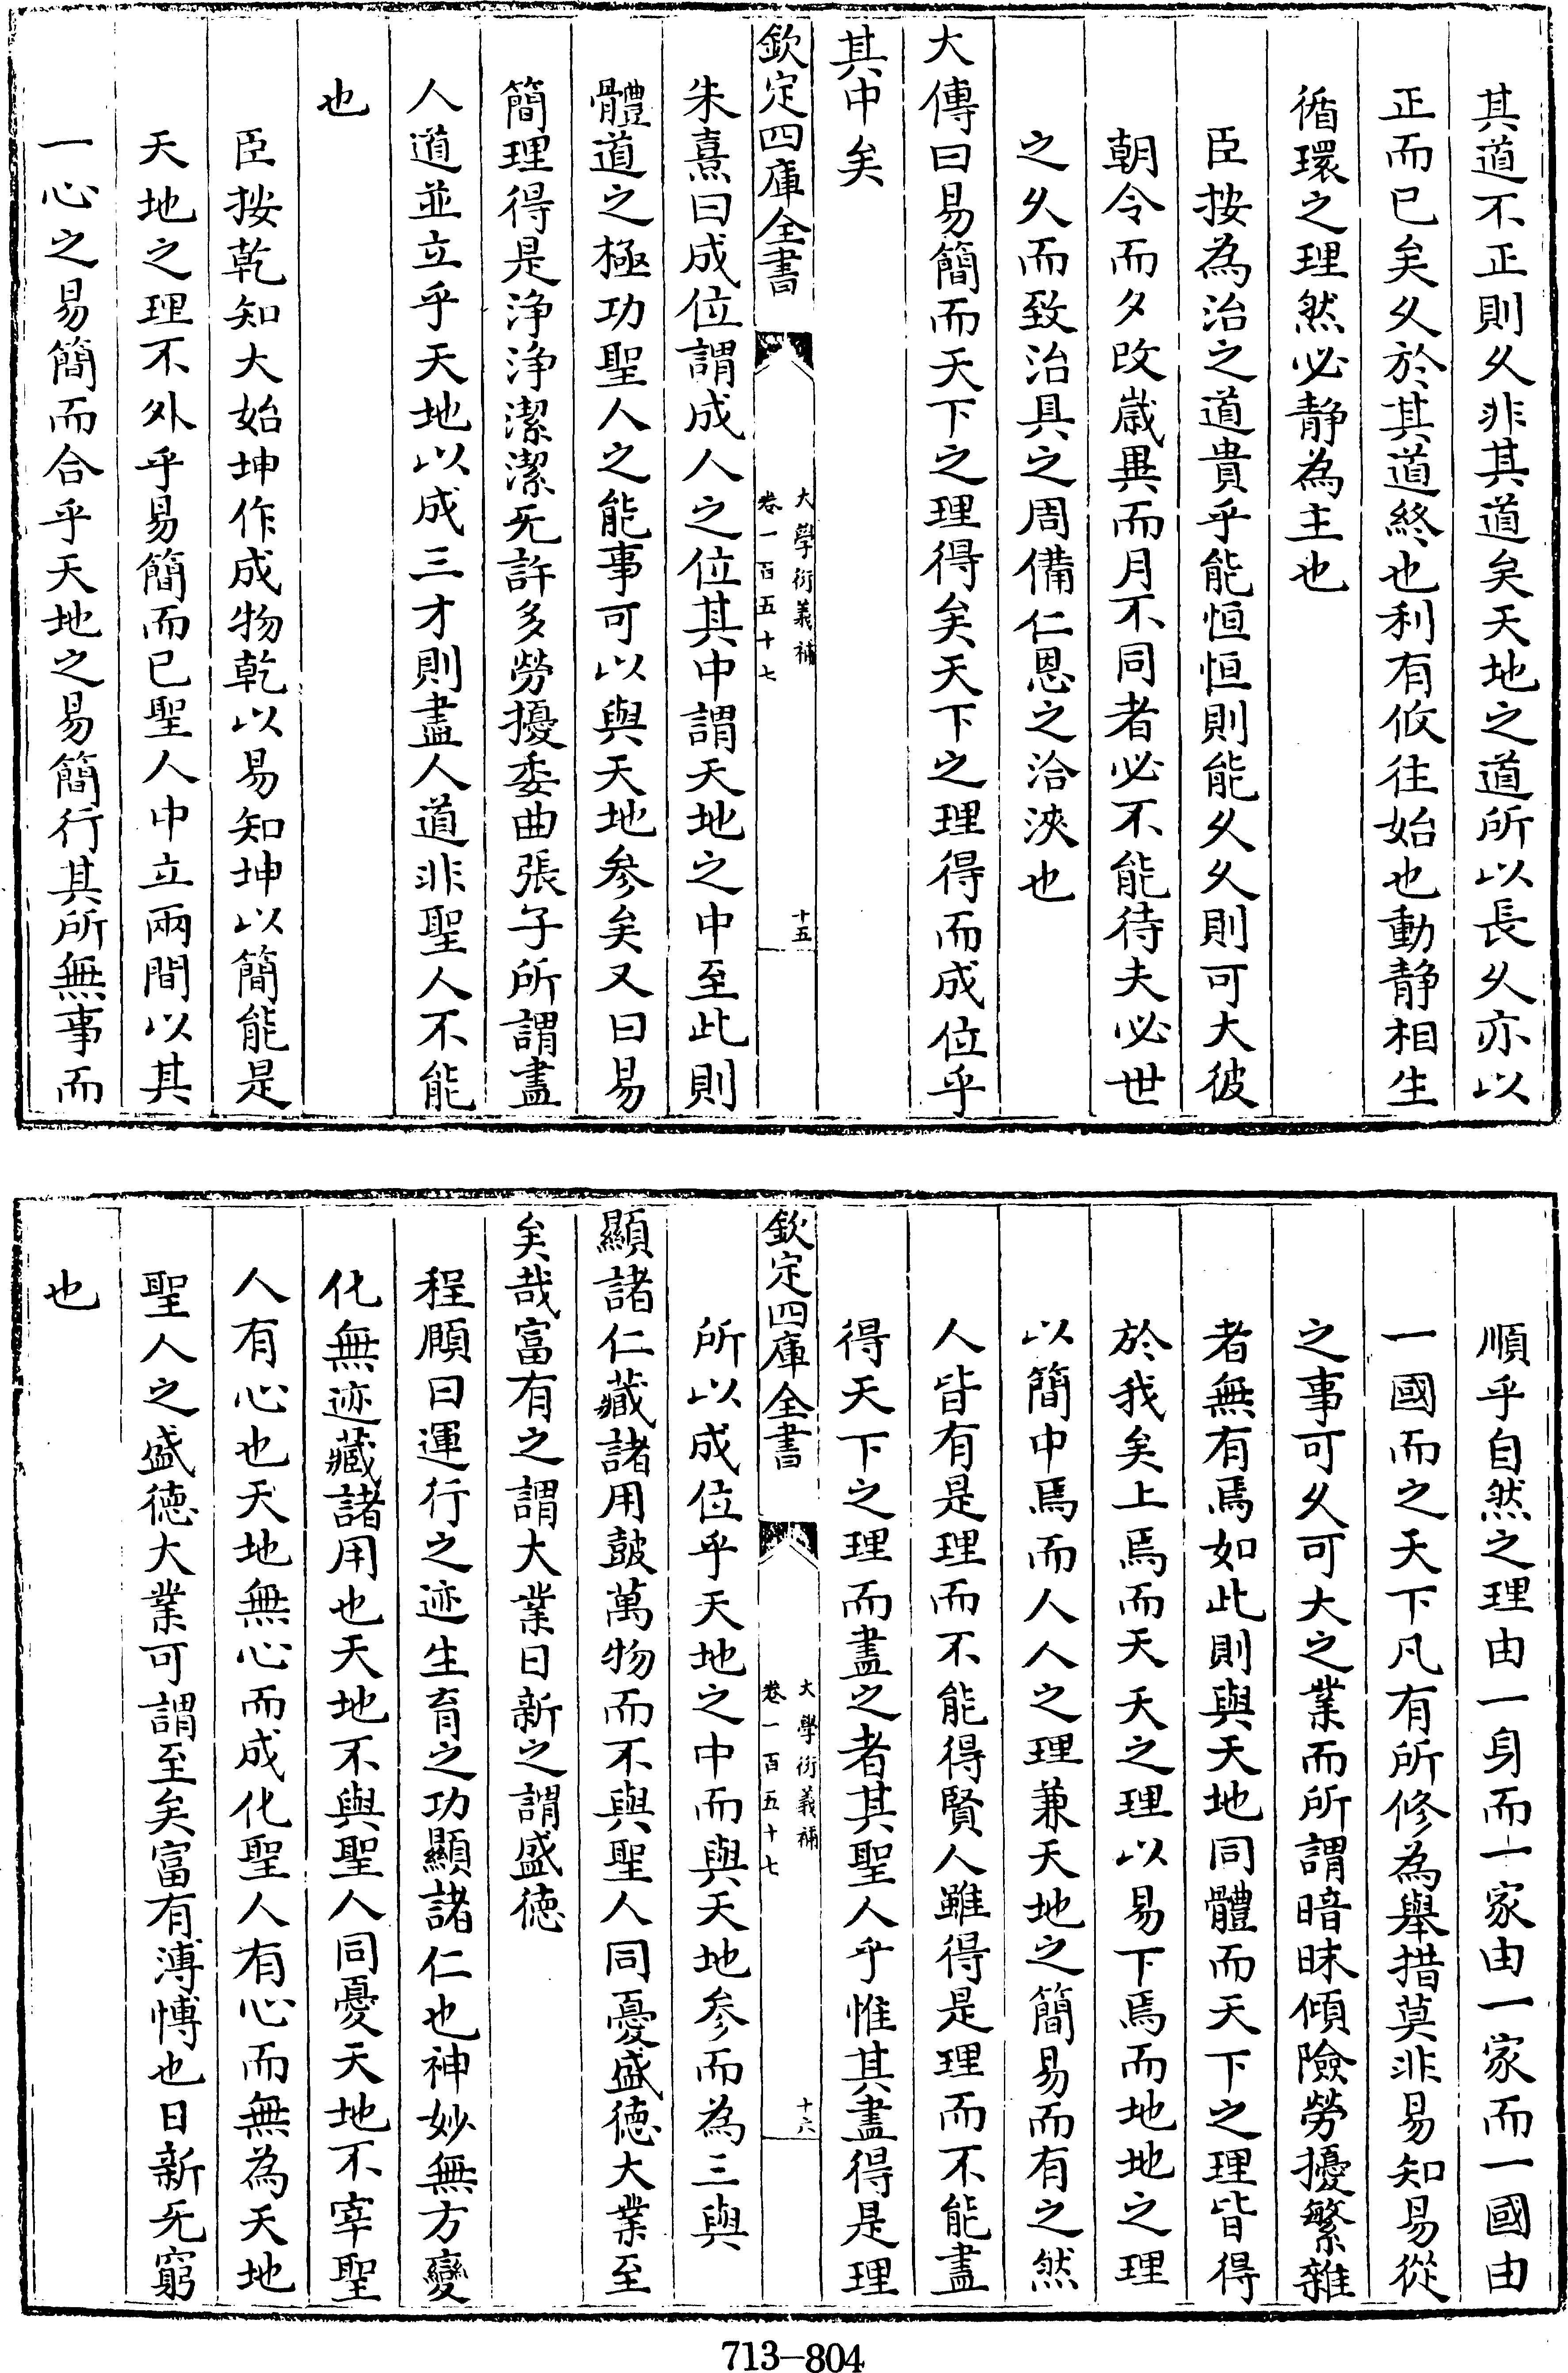 其道不正則久非其道矣天地之道所以長久亦以
正而已矣久於其道終也利有攸往始也動静相生
循環之理然必静為主也
臣按為治之道貴乎能恒恒則能久久則可大彼
朝令而夕改嵗異而月不同者必不能待夫必世
之久而致治具之周備仁恩之洽浹也
大傳曰易簡而天下之理得矣天下之理得而成位乎
其中矣
欽定四庫全書
大學衍義補
卷一百五十七
十五
朱熹曰成位謂成人之位其中謂天地之中至此則
體道之極功聖人之能事可以與天地參矣又曰易
簡理得是浄浄潔潔无許多勞擾委曲張子所謂盡
人道並立乎天地以成三才則盡人道非聖人不能
也
臣按乾知大始坤作成物乾以易知坤以簡能是
天地之理不外乎易簡而已聖人中立兩間以其
一心之易簡而合乎天地之易簡行其所無事而
順乎自然之理由一身而一家由一家而一國由
一國而之天下凡有所修為舉措莫非易知易從
之事可久可大之業而所謂暗昧傾險勞擾繁雜
者無有焉如此則與天地同體而天下之理皆得
於我矣上焉而天天之理以易下焉而地地之理
以簡中焉而人人之理兼天地之簡易而有之然
人皆有是理而不能得賢人雖得是理而不能盡
得天下之理而盡之者其聖人乎惟其盡得是理
欽定四庫全書
大學衍義補
卷一百五十七
十六
所以成位乎天地之中而與天地参而為三與
顯諸仁藏諸用鼓萬物而不與聖人同憂盛徳大業至
矣哉富有之謂大業日新之謂盛徳
程頤曰運行之迹生育之功顯諸仁也神妙無方變
化無迹藏諸用也天地不與聖人同憂天地不宰聖
人有心也天地無心而成化聖人有心而無為天地
聖人之盛徳大業可謂至矣富有溥博也日新无窮
也
713-804